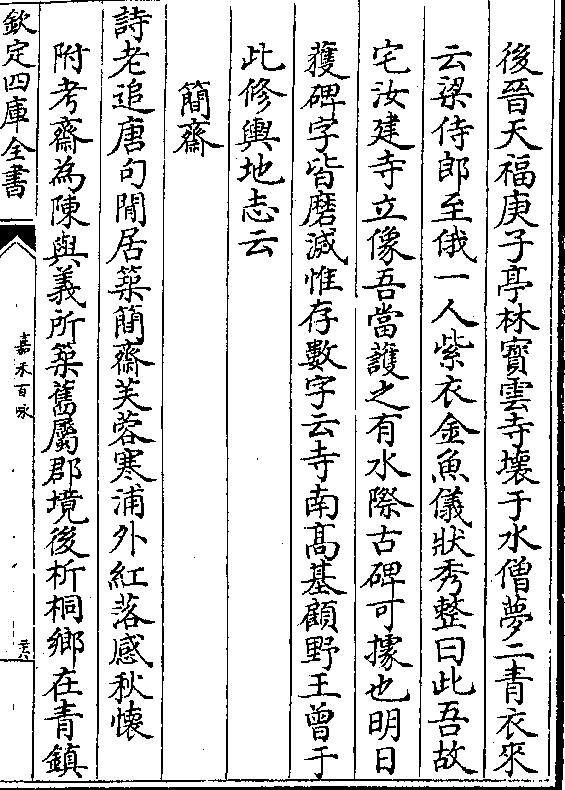 後晉天福庚子亭林寶雲寺壞于水僧夢二青衣來
云梁侍郎至俄一人紫衣金魚儀狀秀整曰此吾故
宅汝建寺立像吾當護之有水際古碑可據也明日
獲碑字皆磨滅惟存數字云寺南髙基顧野王曾于
此修輿地志云
簡齋
詩老追唐句閒居築簡齋芙蓉寒浦外紅落感秋懷
附考齋為陳與義所築舊屬郡境後析桐鄉在青鎮
欽定四庫全書
嘉禾百咏